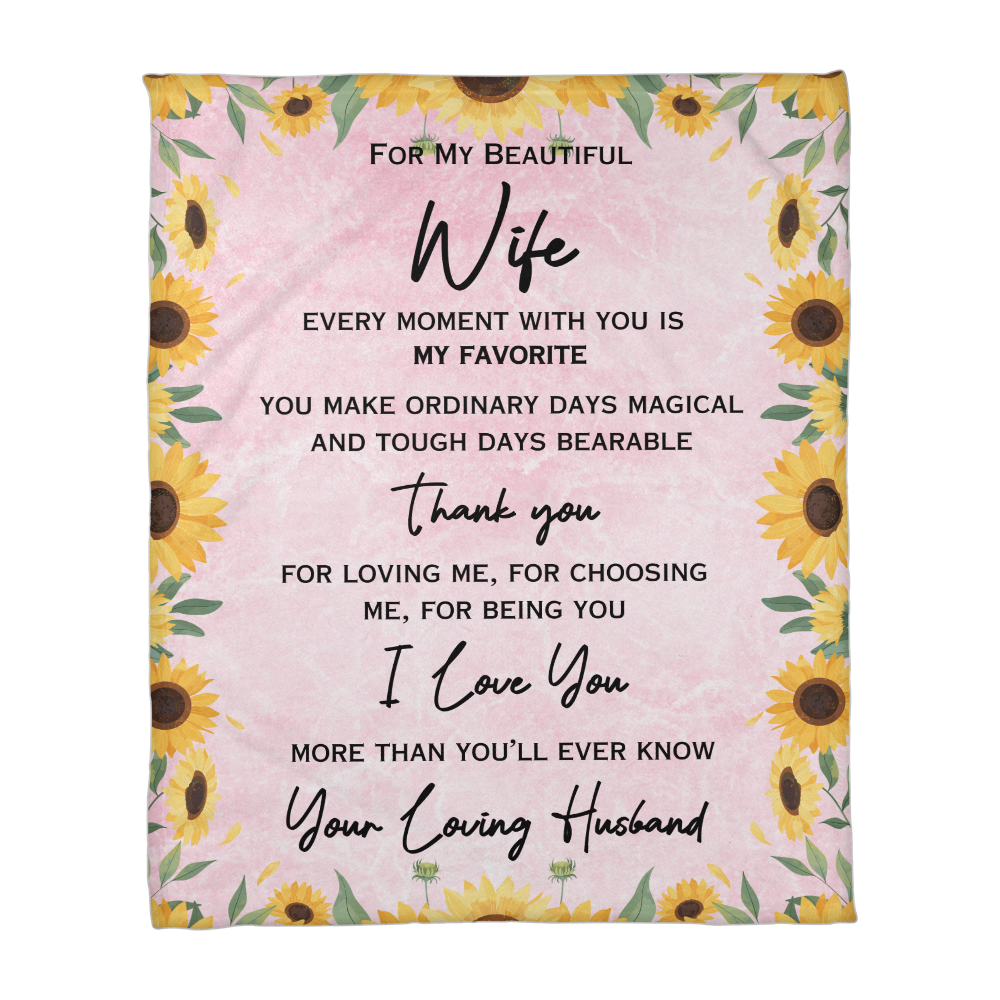 For My Beautiful
Wife
EVERY MOMENT WITH YOU IS
MY FAVORITE
YOU MAKE ORDINARY DAYS MAGICAL
AND TOUGH DAYS BEARABLE
Thank you
FOR LOVING ME, FOR CHOOSING
ME, FOR BEING YOU
I Love You
MORE THAN YOU’LL EVER KNOW
Your Loving Husband